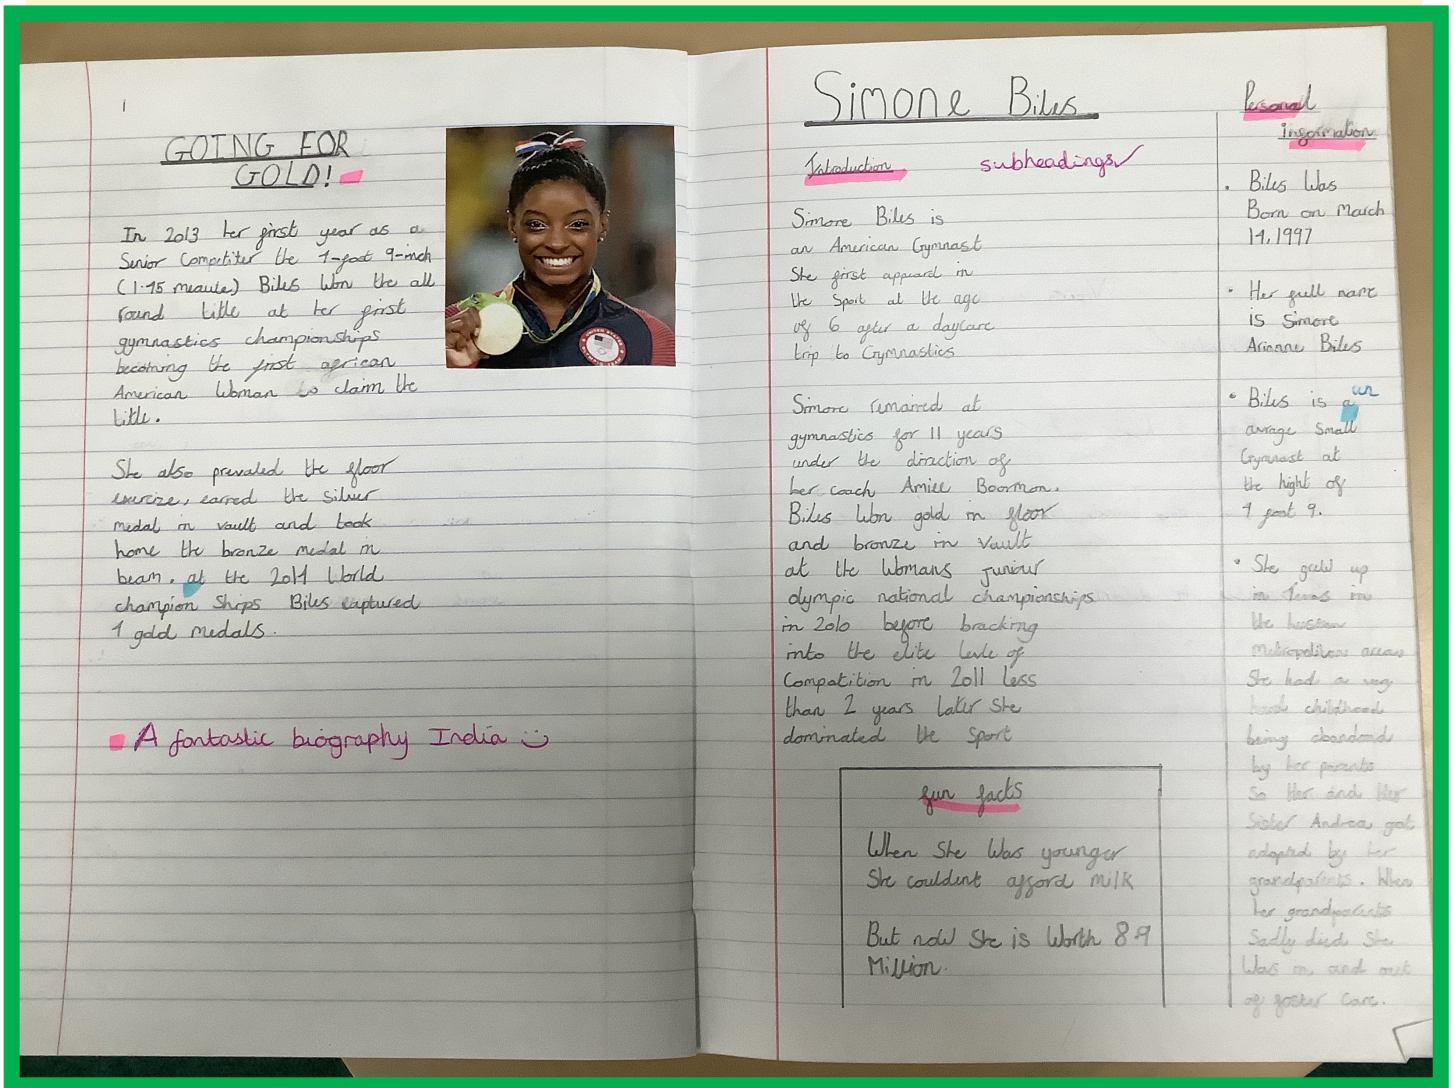 1
GOING FOR
GOLD!
In 2013 her first year as a
Senior Competiter the 4-foot 9-inch
(1.45 meaute) Biles Won the all
round title at her first
gymnastics championships
becoming the first african
American Woman to claim the
title.
She also prevaled the floor
exercize, earned the silver
medal in vault and took
home the bronze medal in
beam. at the 2014 World
champion Ships Biles captured
4 gold medals.
A fantastic biography India
Simone Biles
Introduction
subheadings
Simone Biles is
an American Gymnast
She first appeard in
the Sport at the age
of 6 after a daycare
trip to Gymnastics
Simone remained at
gymnastics for 11 years
under the direction of
her coach Amiee Boorman.
Biles Won gold in floor
and bronze in Vault
at the Womans juniour
olympic national championships
in 2010 before bracking
into the elite levle of
Compatition in 2011 Less
than 2 years later She
dominated the Sport
fun facts
When She Was younger
She couldent afford milk
But now She is Worth 8.9
Million.
Personal
information
Biles Was
Born on March
14, 1997
Her full name
is Simone
Arianne Biles
Biles is a un
avrage Small
Gymnast at
the hight of
4 foot 9.
She grew up
in Texas in
the
metropolitan areas
She had a very
hard childhood
being abandond
by her parents
So Her and Her
Sister Andrea got
adopted by her
grandparents. When
her grandparents
Sadly died She
Was in and out
of foster Care.